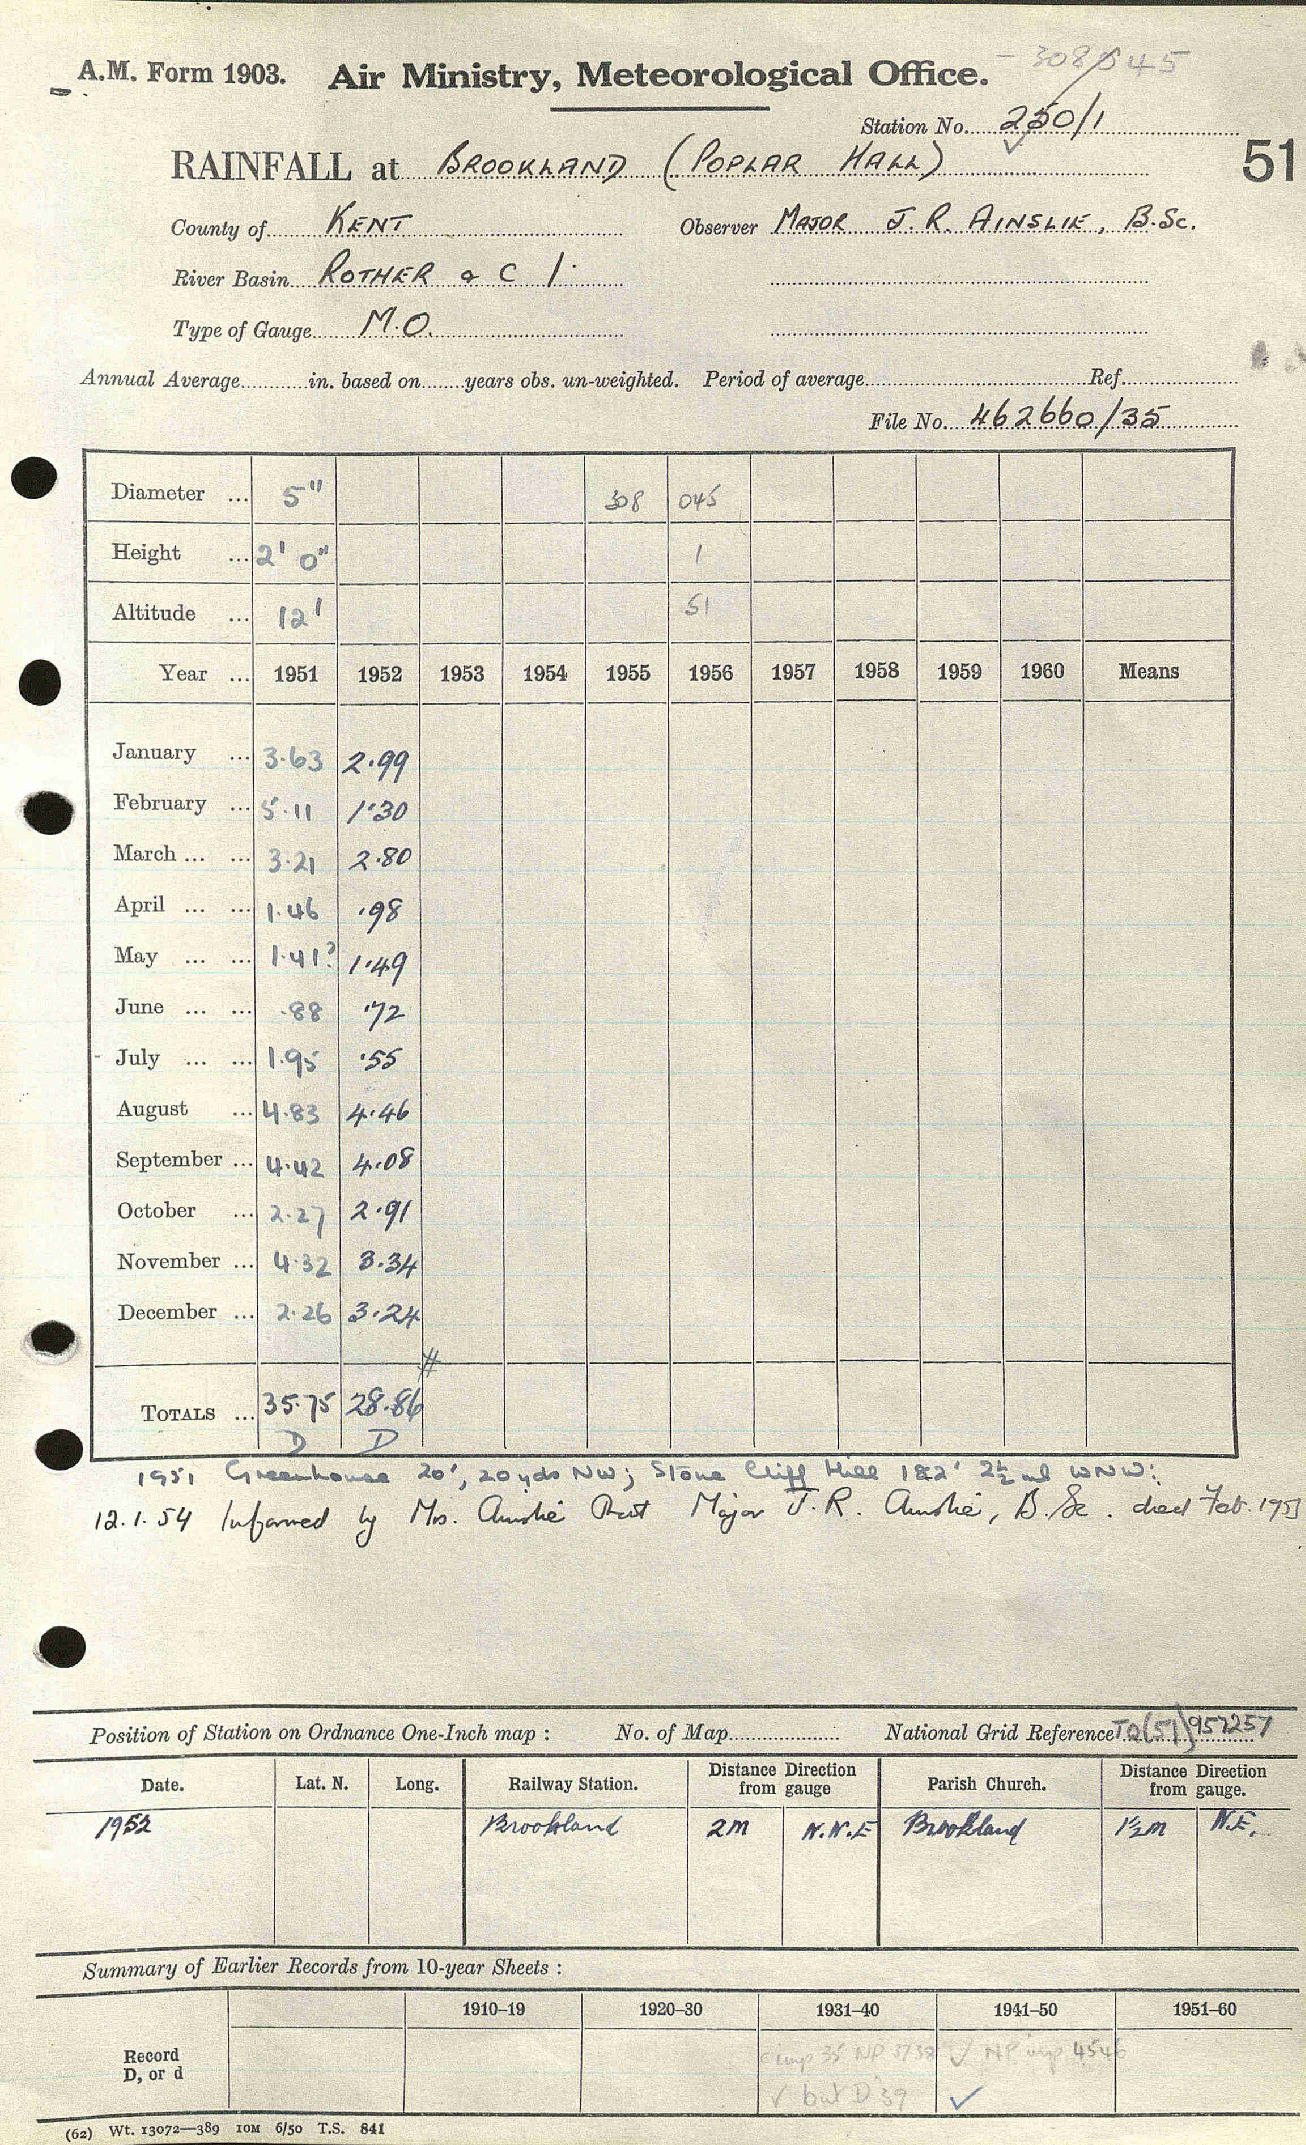 A.M. Form 1903. Air Ministry, Meteorological Office. 308/545
Station No. 250/1
RAINFALL at BROOKLAND (POPLAR HALL) 51
County of KENT Observer MAJOR J. R. AINSLIE, B.Sc.
River Basin ROTHER & C 1.
Type of Gauge M.O.
Annual Average in. based on years obs. un-weighted. Period of average Ref.
File No. 462660/35
Diameter ... 5" 308 045
Height ... 2' 0" 1
Altitude ... 12' 51
Year ... 1951 1952 1953 1954 1955 1956 1957 1958 1959 1960 Means
January ... 3.63 2.99
February ... 5.11 1.30
March ... ... 3.21 2.80
April ... ... 1.46 .98
May ... ... 1.41? 1.49
June ... ... .88 .72
July ... ... 1.95 .55
August ... 4.83 4.46
September ... 4.42 4.08
October ... 2.27 2.91
November ... 4.32 3.34
December ... 2.26 3.24
TOTALS ... 35.75 28.86
D D
1951 Greenhouse 20', 20 yds NW; Stone Cliff Hill 182' 2½ ml WNW:
12.1.54 Informed by Mrs. Ainslie that Major J. R. Ainslie, B.Sc. died Feb. 1953
Position of Station on Ordnance One-Inch map : No. of Map National Grid Reference TQ(51)957257
Date. Lat. N. Long. Railway Station. Distance from gauge Direction Parish Church. Distance from gauge. Direction
1952 Brookland 2M N.N.E Brookland 1½M N.E.
Summary of Earlier Records from 10-year Sheets :
1910–19 1920–30 1931–40 1941–50 1951–60
Record D, or d imp 35 NP 37 38 ✓ NP imp 4546
✓ but D 39 ✓
(62) Wt. 13072—389 10M 6/50 T.S. 841